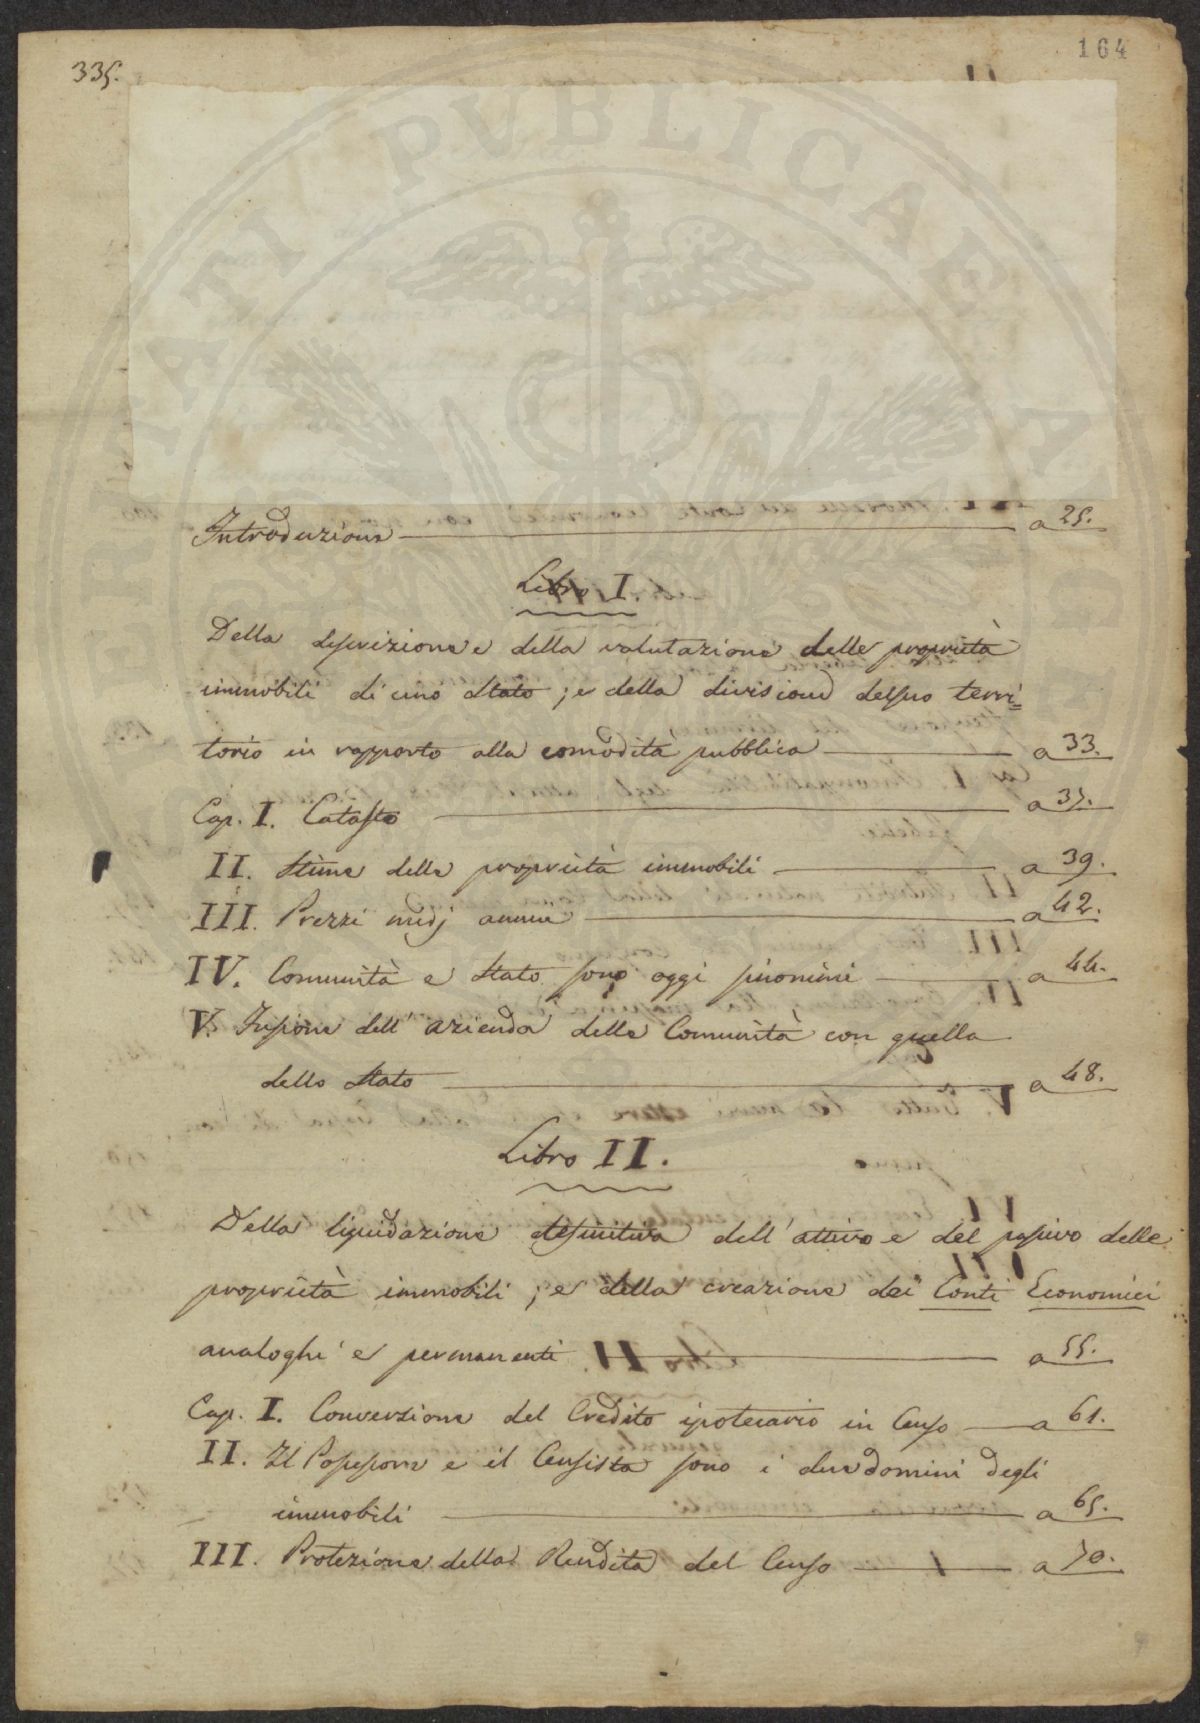 335.
164
UTILITATI PUBLICAE
Introduzione a 25.
Libro I.
Della descrizione e della valutazione delle proprietà
immobili di uno Stato; e della divisione del suo terri=
torio in rapporto alla comodità pubblica a 33.
Cap. I. Catasto a 37.
II. Stima delle proprietà immobili a 39.
III. Prezzi medj annui a 42.
IV. Comunità e Stato sono oggi sinonimi a 44.
V. Fusione dell'azienda delle Comunità con quella
dello Stato a 48.
Libro II.
Della liquidazione definitiva dell'attivo e del passivo delle
proprietà immobili; e della creazione dei Conti Economici
analoghi e permanenti a 55.
Cap. I. Conversione del Credito ipotecario in Censo a 61.
II. Il Possessore e il Censista sono i due domini degli
immobili a 65.
III. Protezione della Rendita del Censo a 70.